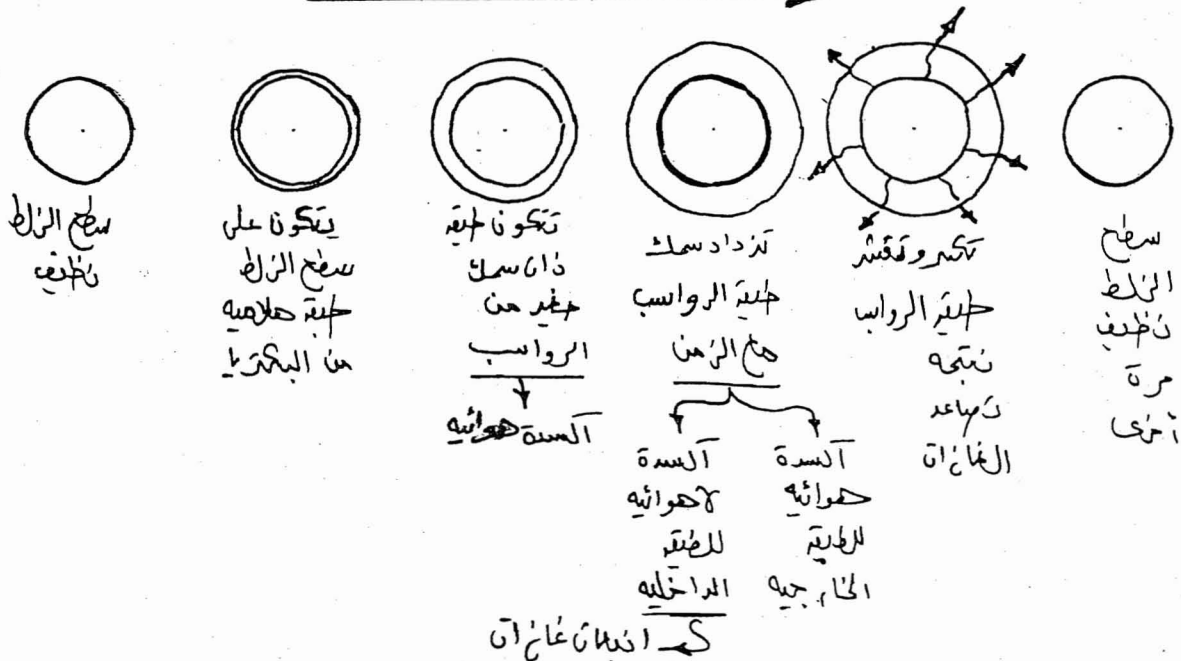 سطح الزلط
نظيف
يتكون على
سطح الزلط
طبقة هلاميه
من البكتريا
تتكون طبقه
ذات سمك
صغير من
الرواسب
أكسدة هوائيه
تزداد سمك
طبقة الرواسب
مع الزمن
أكسدة
لاهوائيه
للطبقه
الداخليه
انبعاث غازات
أكسدة
هوائيه
للطبقه
الخارجيه
تكسر وتقشر
طبقه الرواسب
نتيجه
تصاعد
الغازات
سطح
الزلط
نظيف
مرة
أخرى